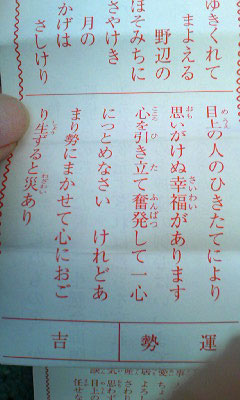 ゆきくれて
まよえる
野辺の
ほそみちに
さやけき
月の
かげは
さしけり
運勢吉
目上の人のひきたてにより
思いがけぬ幸福があります
心を引き立て奮発して一心
につとめなさい けれどあ
まり勢にまかせて心におご
り生ずると災あり